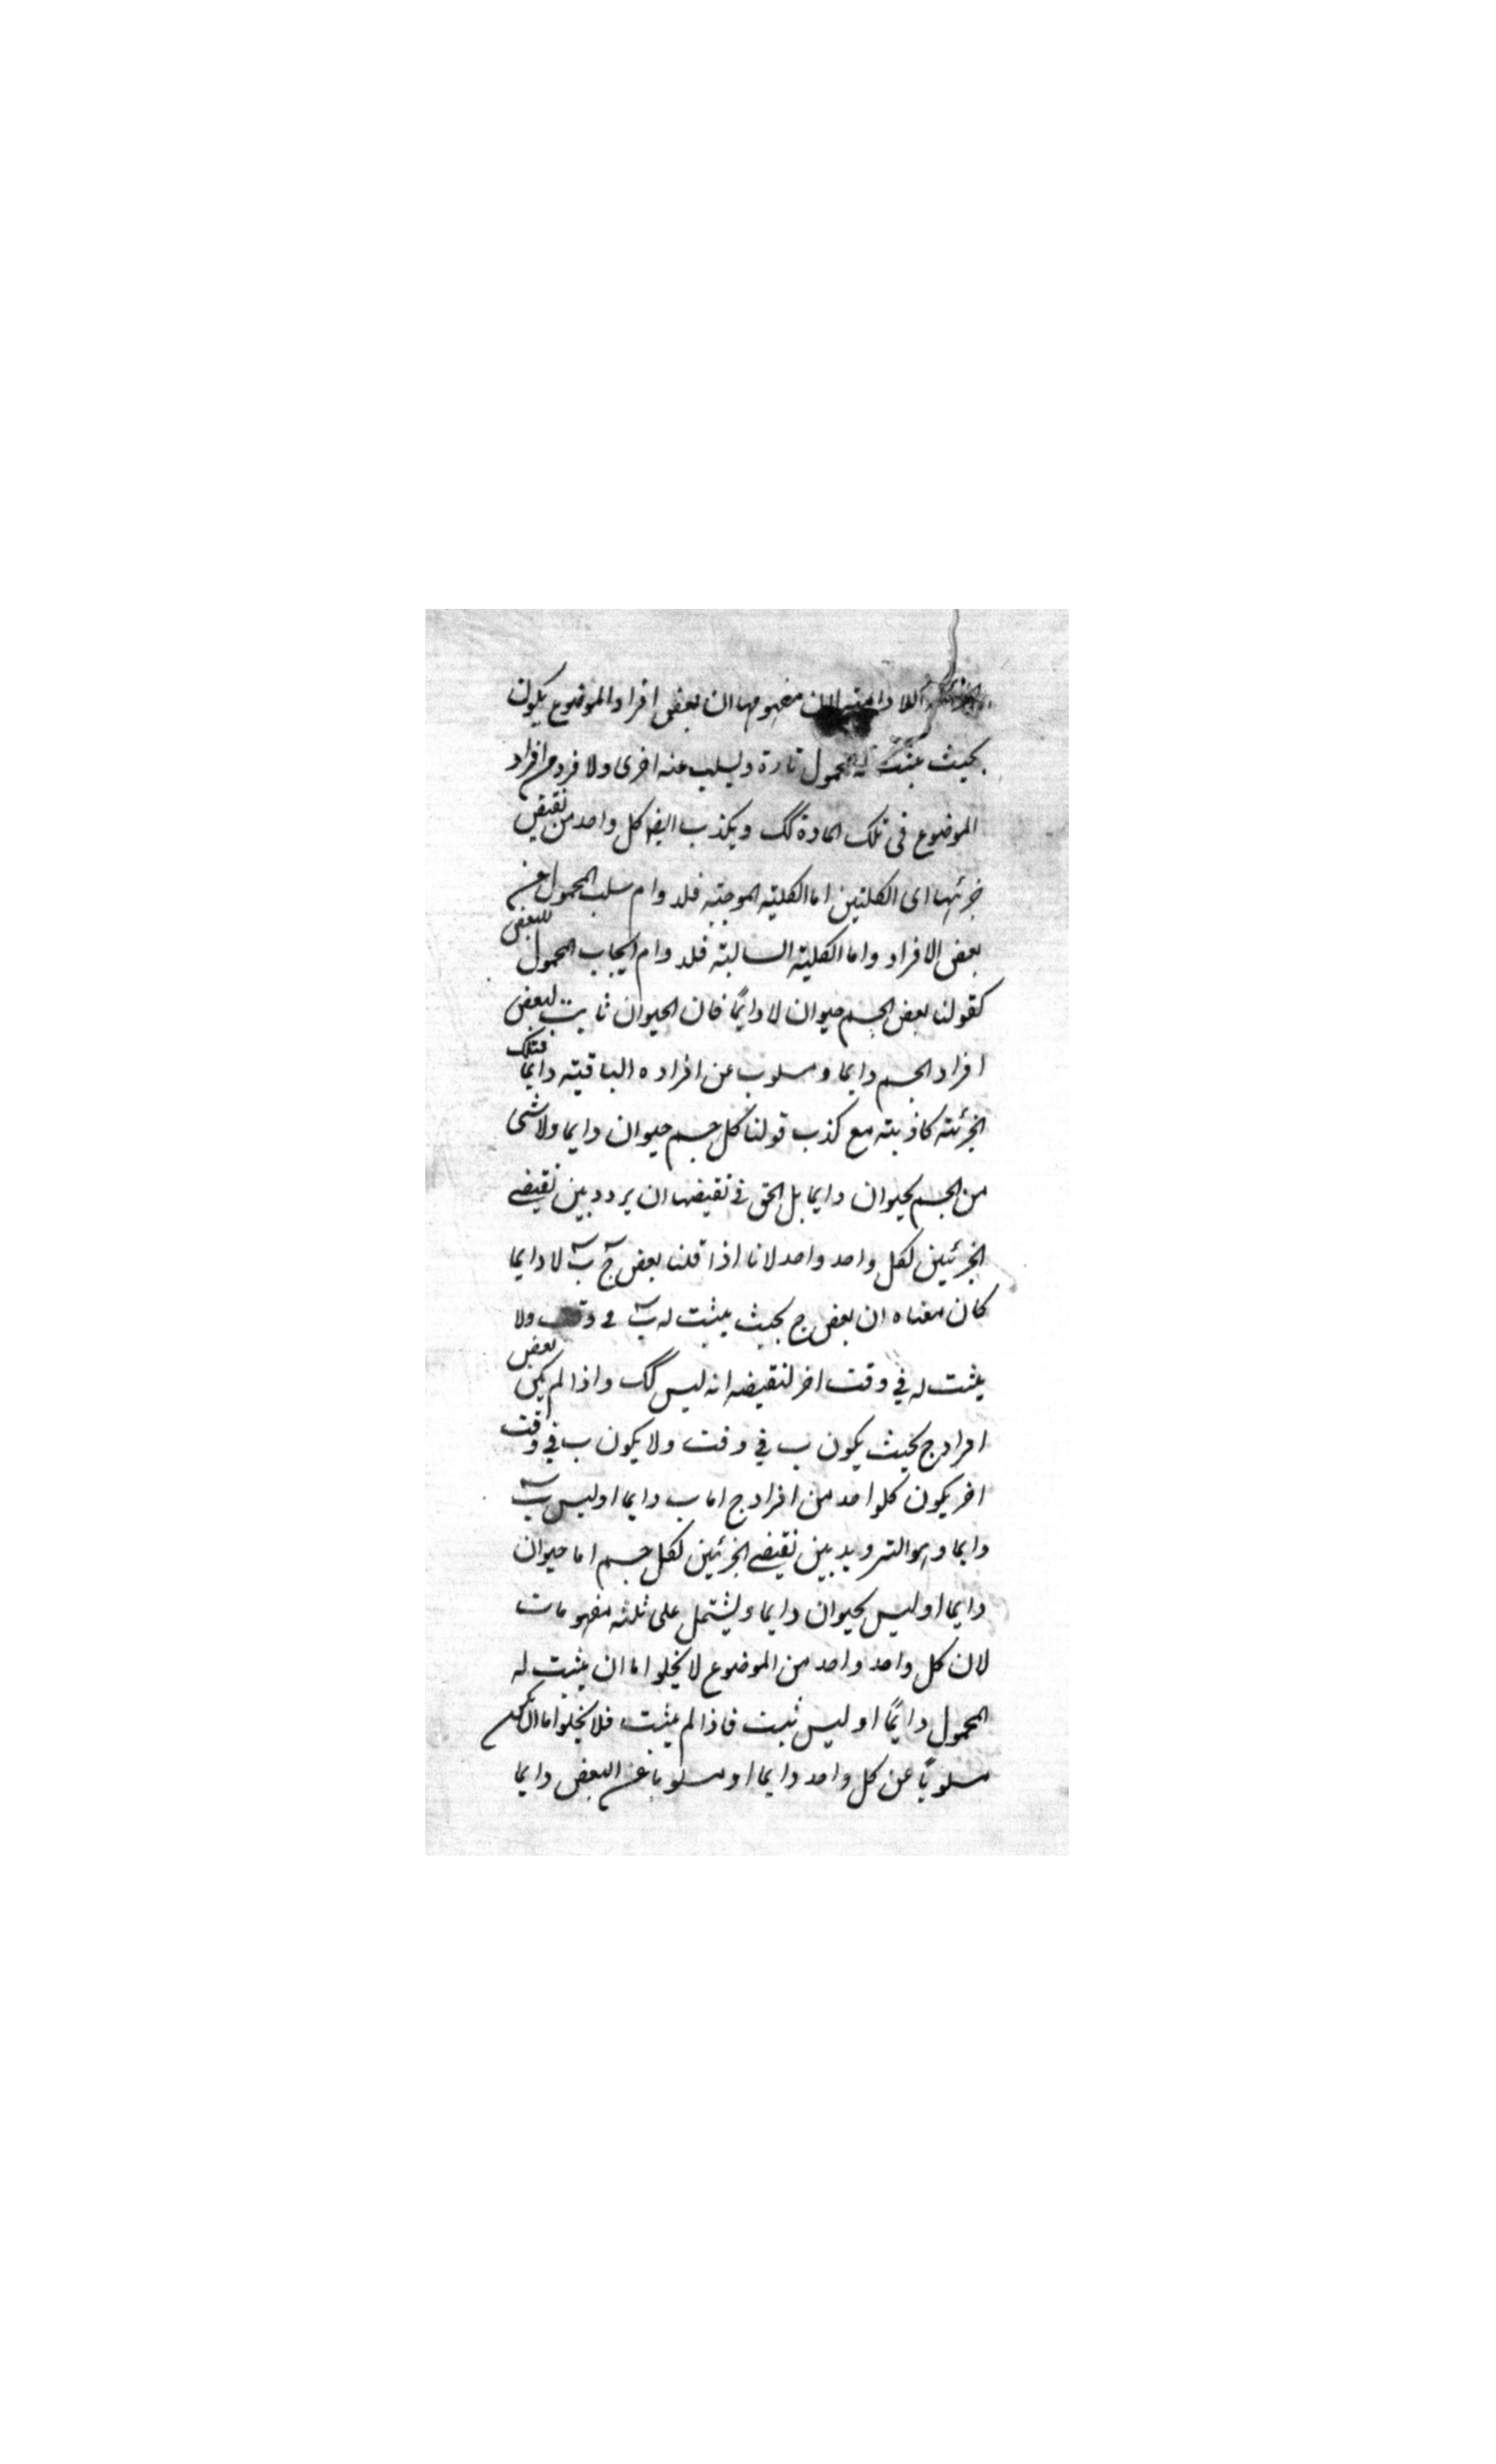 اللادائمة لان مفهومها ان بعض افراد الموضوع يكون
بحيث يثبت له المحمول تارة ويسلب عنه اخرى ولا فرد من افراد
الموضوع فى تلك المادة كك ويكذب ايضا كل واحد من نقيضى
جزئيها اى الكليتين اما الكلية الموجبة فلدوام سلب المحمول عن
بعض الافراد واما الكلية السالبة فلدوام ايجاب المحمول للبعض
كقولنا بعض الجسم حيوان لا دائمًا فان الحيوان ثابت لبعض
افراد الجسم دايما ومسلوب عن افراده الباقية دايما فتلك
الجزئية كاذبة مع كذب قولنا كل جسم حيوان دايما ولا شى
من الجسم بحيوان دايما بل الحق فى نقيضها ان يردد بين نقيضى
الجزئين لكل واحد واحد لانا اذا قلنا بعض ج ب لا دايما
كان معناه ان بعض ج بحيث يثبت له ب فى وقت ولا
يثبت له فى وقت اخر لنقيضه انه ليس كك واذا لم يكن بعض
افراد ج بحيث يكون ب فى وقت ولا يكون ب فى وقت
اخر يكون كلواحد من افراد ج اما ب دايما او ليس ب
دايما وهو الترديد بين نقيضى الجزئين لكل جسم اما حيوان
دايما او ليس بحيوان دايما ويشتمل على ثلثه مفهومات
لان كل واحد واحد من الموضوع لا يخلو اما ان يثبت له
المحمول دائمًا او ليس ثبت فاذا لم يثبت فلا يخلو اما ان يكون
مسلوبًا عن كل واحد دايما او مسلوبا عن البعض دايما